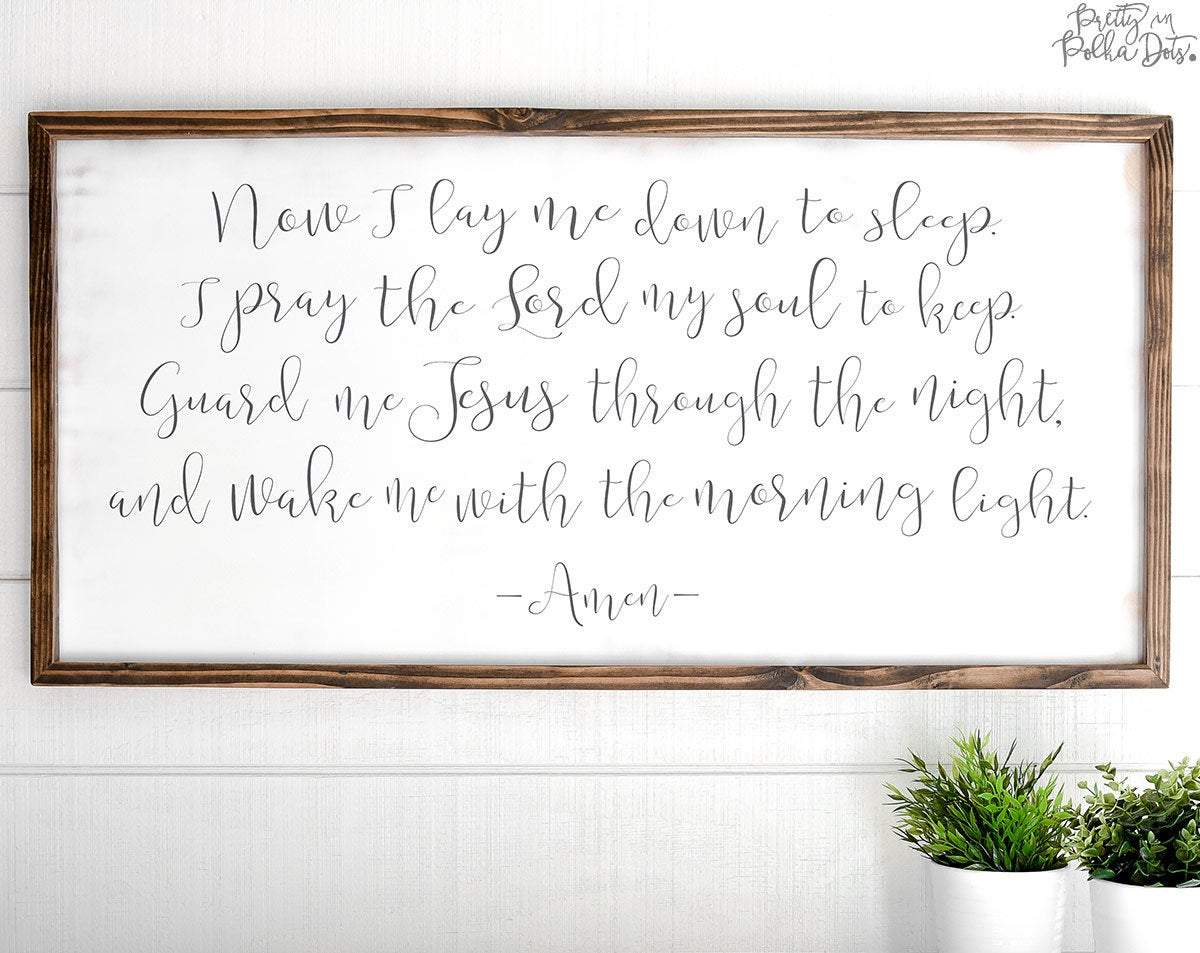 Pretty in
Polka Dots.
Now I lay me down to sleep.
I pray the Lord my soul to keep.
Guard me Jesus through the night,
and wake me with the morning light.
-Amen-